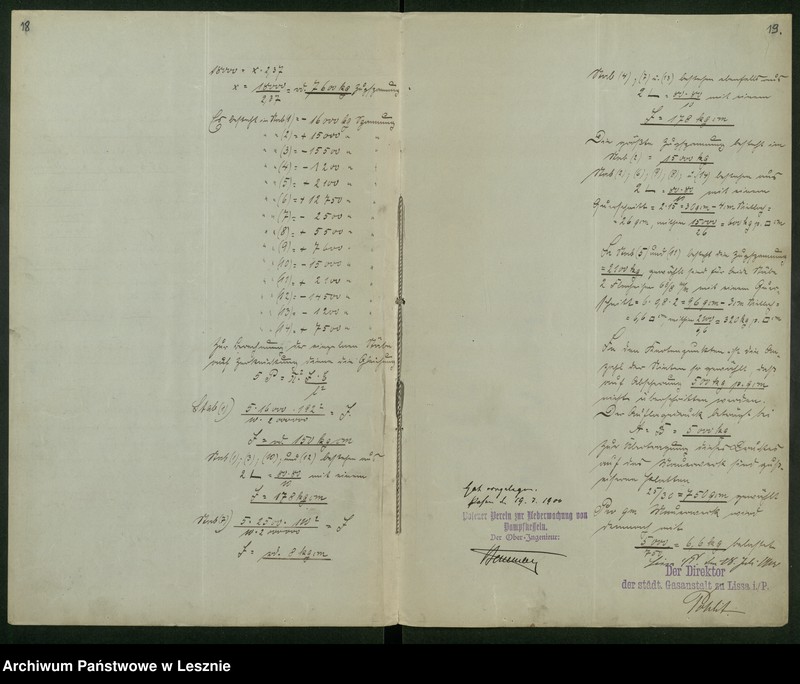 18
18000 = x · 2,37
x = 18000 / 2,37 = rd. 7600 kg Zugspannung
Es besteht in Stab (1) = - 16000 kg Spannung
" " (2) = + 15000 "
" " (3) = - 15500 "
" " (4) = - 1200 "
" " (5) = + 2100 "
" " (6) = + 12750 "
" " (7) = - 2500 "
" " (8) = + 5500 "
" " (9) = + 7600 "
" " (10) = - 15000 "
" " (11) = + 2100 "
" " (12) = - 14500 "
" " (13) = - 1200 "
" " (14) = + 7500 "
Zur Berechnung der einzelnen Stäbe
auf Zerknickung dient die Gleichung
5 P = π² · J · E / l²
Stab (1) 5 · 16000 · 192² / 10 · 2000000 = J.
J = rd. 150 kg cm
Stab (1), (3), (10), und (12) bestehen aus
2 L = 80·80 / 10 mit einem
J = 178 kg cm
Stab (7) 5 · 2500 · 110² / 10 · 2000000 = J
J = rd. 8 kg cm
19.
Stab (4), (7) u. (13) bestehen ebenfalls aus
2 L = 80·80 / 10 mit einem
J = 178 kg cm
Die größte Zugspannung besteht in
Stab (2) = 15000 kg
Stab (2), (6), (9), (8), u. (14) bestehen aus
2 L = 80·80 / 10 mit einem
Querschnitt = 2 · 15 = 30 qcm - 4 cm
= 26 qcm, mithin 15000 / 26 = 600 kg p. □cm
In Stab (5) und (11) besteht die Zugspannung
= 2100 kg, gewählt sind für beide Stäbe
2 Flacheisen mit einem Quer-
schnitt = 6 · 0,8 · 2 = 9,6 qcm - 3 cm
= 6,6 □cm mithin 2100 / 6,6 = 320 kg p. □cm
In den Knotenpunkten ist die An-
zahl der Nieten so gewählt, daß
auf Abscherung 500 kg p. qcm
nicht überschritten werden.
Der Auflagedruck beträgt bei
A = B = 5000 kg
Zur Übertragung dieses Druckes
auf das Mauerwerk sind guß-
eiserne Platten
25/30 = 750 qcm gewählt
Pro qcm Mauerwerk wird
demnach mit
5000 / 750 = 6,6 kg belastet
Hat vorgelegen.
Posen d. 19. 7. 1900
Posener Verein zur Ueberwachung von
Dampfkesseln.
Der Ober-Ingenieur:
Der Direktor
der städt. Gasanstalt zu Lissa i./P.
Archiwum Państwowe w Lesznie